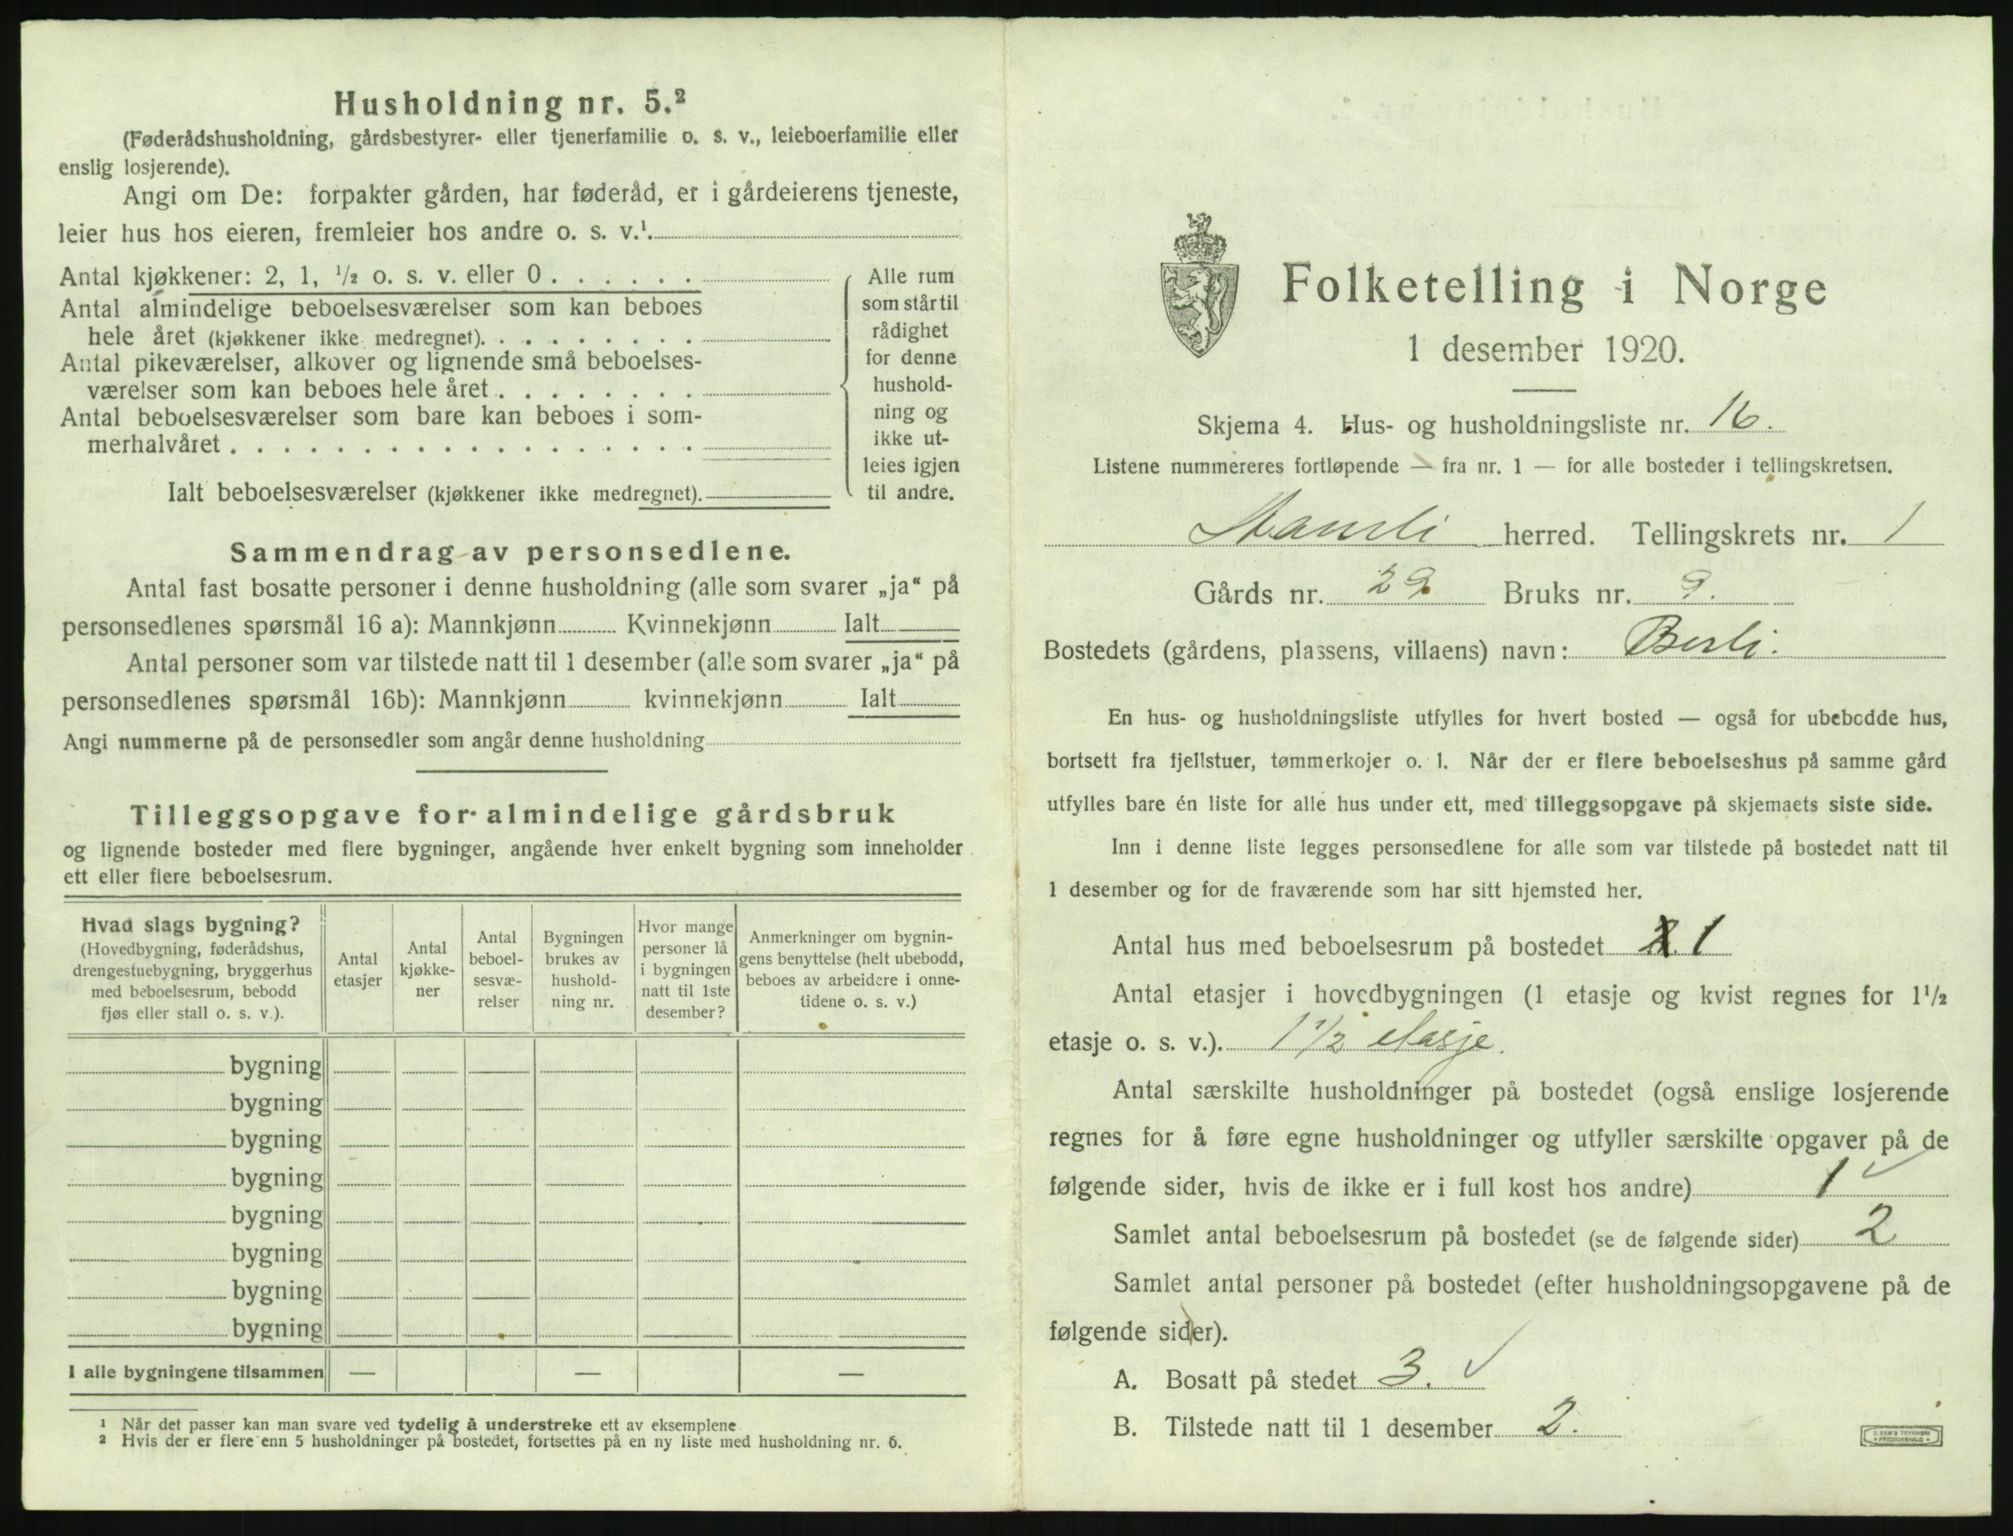 Husholdning nr. 5.²
(Føderådshusholdning, gårdsbestyrer- eller tjenerfamilie o. s. v., leieboerfamilie eller
enslig losjerende).
Angi om De: forpakter gården, har føderåd, er i gårdeierens tjeneste,
leier hus hos eieren, fremleier hos andre o. s. v.¹
Antal kjøkkener: 2, 1, ½ o. s. v. eller 0 . . . . . .
Antal almindelige beboelsesværelser som kan beboes
hele året (kjøkkener ikke medregnet). . . . . . . . .
Antal pikeværelser, alkover og lignende små beboelses-
værelser som kan beboes hele året . . . . . . . .
Antal beboelsesværelser som bare kan beboes i som-
merhalvåret . . . . . . . . . . . . . . . . . .
Ialt beboelsesværelser (kjøkkener ikke medregnet).
Alle rum
som står til
rådighet
for denne
hushold-
ning og
ikke ut-
leies igjen
til andre.
Sammendrag av personsedlene.
Antal fast bosatte personer i denne husholdning (alle som svarer „ja“ på
personsedlenes spørsmål 16 a): Mannkjønn Kvinnekjønn Ialt
Antal personer som var tilstede natt til 1 desember (alle som svarer „ja“ på
personsedlenes spørsmål 16b): Mannkjønn kvinnekjønn Ialt
Angi nummerne på de personsedler som angår denne husholdning
Tilleggsopgave for almindelige gårdsbruk
og lignende bosteder med flere bygninger, angående hver enkelt bygning som inneholder
ett eller flere beboelsesrum.
Hvad slags bygning?
(Hovedbygning, føderådshus,
drengestuebygning, bryggerhus
med beboelsesrum, bebodd
fjøs eller stall o. s. v.).
Antal
etasjer
Antal
kjøkke-
ner
Antal
beboel-
sesvæ-
relser
Bygningen
brukes av
hushold-
ning nr.
Hvor mange
personer lå
i bygningen
natt til 1ste
desember?
Anmerkninger om bygnin-
gens benyttelse (helt ubebodd,
beboes av arbeidere i onne-
tidene o. s. v.)
bygning
bygning
bygning
bygning
bygning
bygning
bygning
bygning
I alle bygningene tilsammen — — —
¹ Når det passer kan man svare ved tydelig å understreke ett av eksemplene
² Hvis der er flere enn 5 husholdninger på bostedet, fortsettes på en ny liste med husholdning nr. 6.
Folketelling i Norge
1 desember 1920.
Skjema 4. Hus- og husholdningsliste nr. 16.
Listene nummereres fortløpende — fra nr. 1 — for alle bosteder i tellingskretsen.
herred. Tellingskrets nr. 1
Gårds nr. 29 Bruks nr. 9.
Bostedets (gårdens, plassens, villaens) navn: Berli.
En hus- og husholdningsliste utfylles for hvert bosted — også for ubebodde hus,
bortsett fra fjellstuer, tømmerkojer o. l. Når der er flere beboelseshus på samme gård
utfylles bare én liste for alle hus under ett, med tilleggsopgave på skjemaets siste side.
Inn i denne liste legges personsedlene for alle som var tilstede på bostedet natt til
1 desember og for de fraværende som har sitt hjemsted her.
Antal hus med beboelsesrum på bostedet 1
Antal etasjer i hovedbygningen (1 etasje og kvist regnes for 1½
etasje o. s. v.). 1 1/2 etasje.
Antal særskilte husholdninger på bostedet (også enslige losjerende
regnes for å føre egne husholdninger og utfyller særskilte opgaver på de
følgende sider, hvis de ikke er i full kost hos andre) 1 ✓
Samlet antal beboelsesrum på bostedet (se de følgende sider) 2
Samlet antal personer på bostedet (efter husholdningsopgavene på de
følgende sider).
A. Bosatt på stedet 3. ✓
B. Tilstede natt til 1 desember 2.